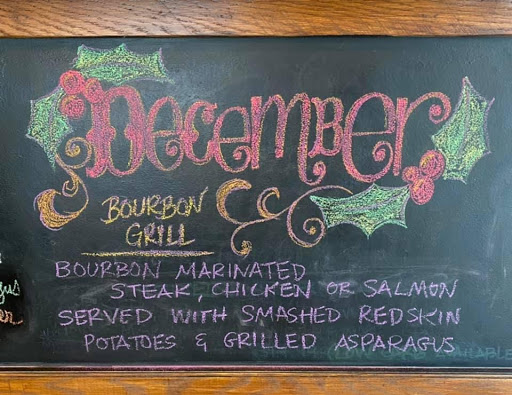 December
BOURBON
GRILL
BOURBON MARINATED
STEAK, CHICKEN OR SALMON
SERVED WITH SMASHED REDSKIN
POTATOES & GRILLED ASPARAGUS